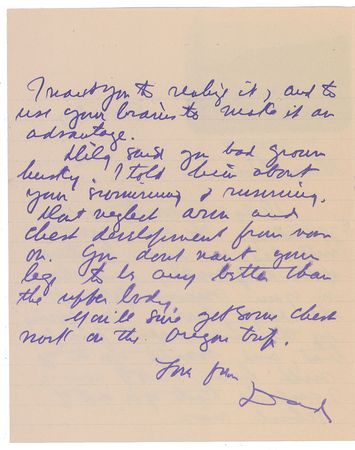 I want you to realize it, and to
use your brains to make it an
advantage.
said you had grown
husky. I told him about
your swimming & running.
Dont neglect arm and
chest development from now
on. You dont want your
legs to be any better than
the upper body
You'll sure get some chest
work on the Oregon trip.
Love from
Dad